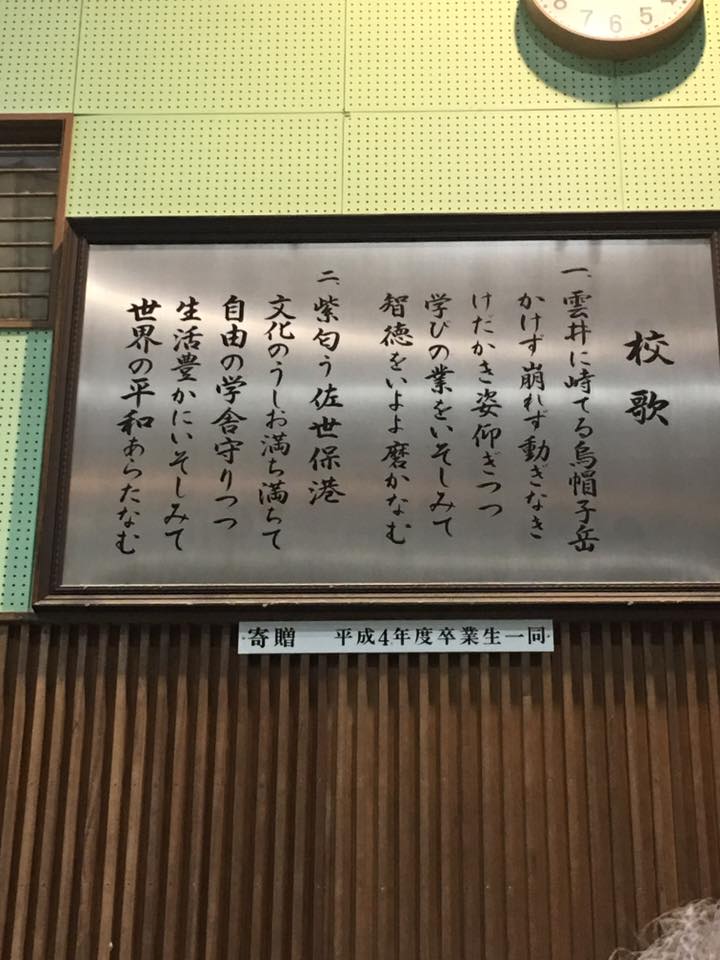 校歌
一、雲井に峙てる烏帽子岳
かけず崩れず動ぎなき
けだかき姿仰ぎつつ
学びの業をいそしみて
智徳をいよよ磨かなむ
二、紫匂う佐世保港
文化のうしお満ち満ちて
自由の学舎守りつつ
生活豊かにいそしみて
世界の平和あらたなむ
寄贈 平成4年度卒業生一同
8 7 6 5 4